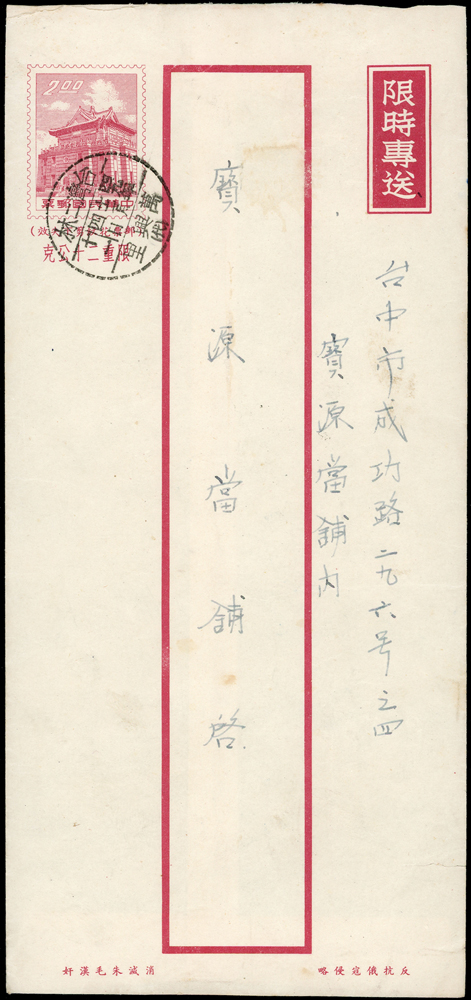 限時專送
台中市成功路二九六号之四
寶源當舖內
寶源當舖啓
2.00
中華民國郵票
限重二十公克
反抗俄寇侵略
消滅朱毛漢奸